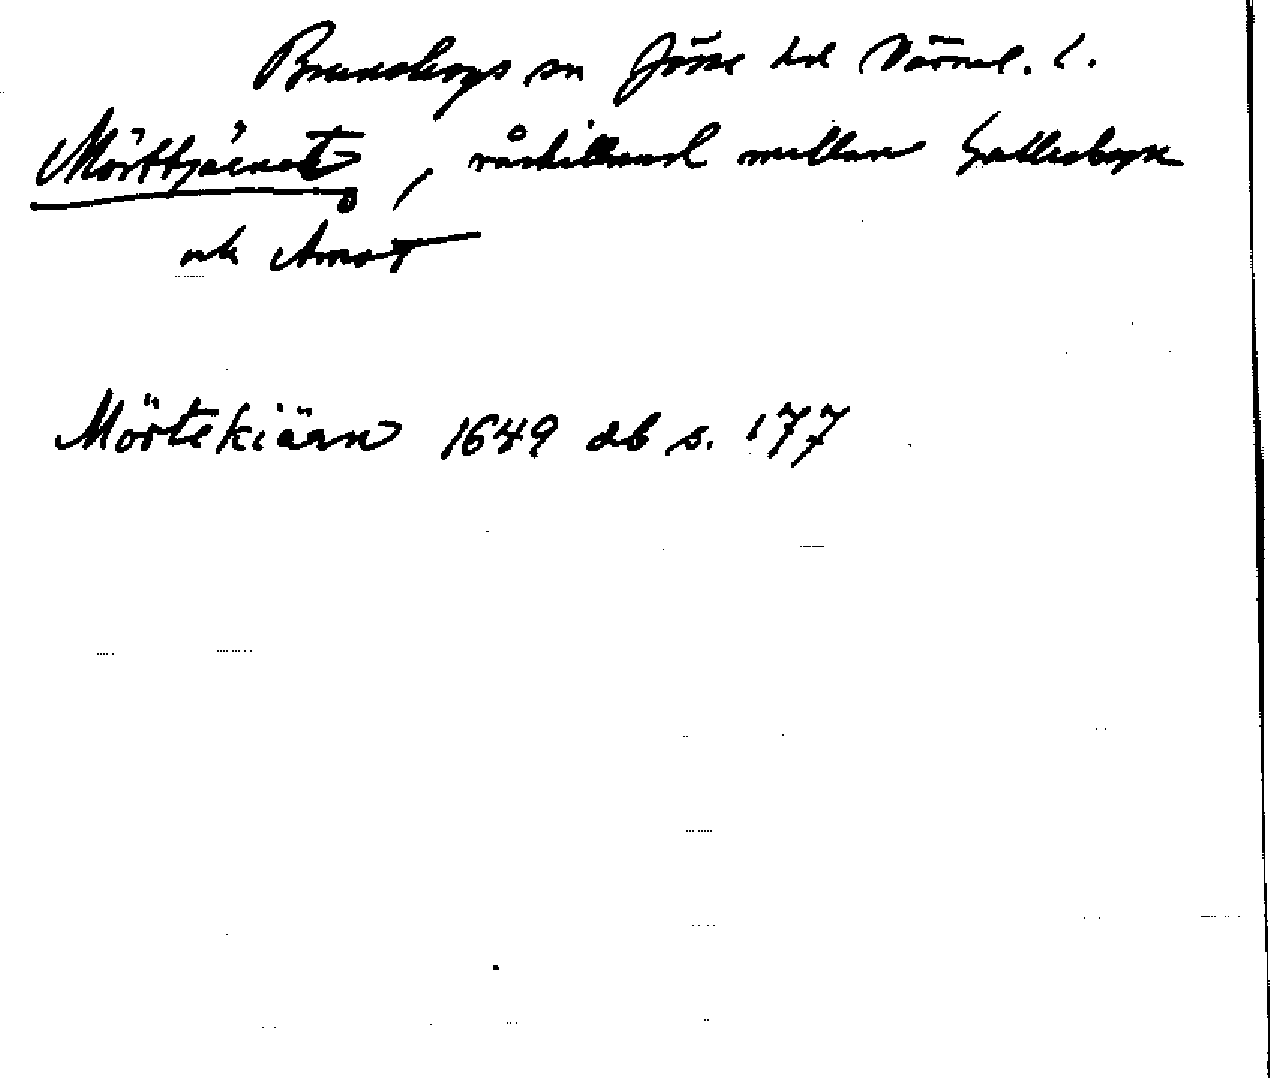 Brunskogs sn Jösse hd Värml. l.
Mörttjärnet, råskillnad mellan
och Åmot
Mörtekiärn 1649 db s. 177